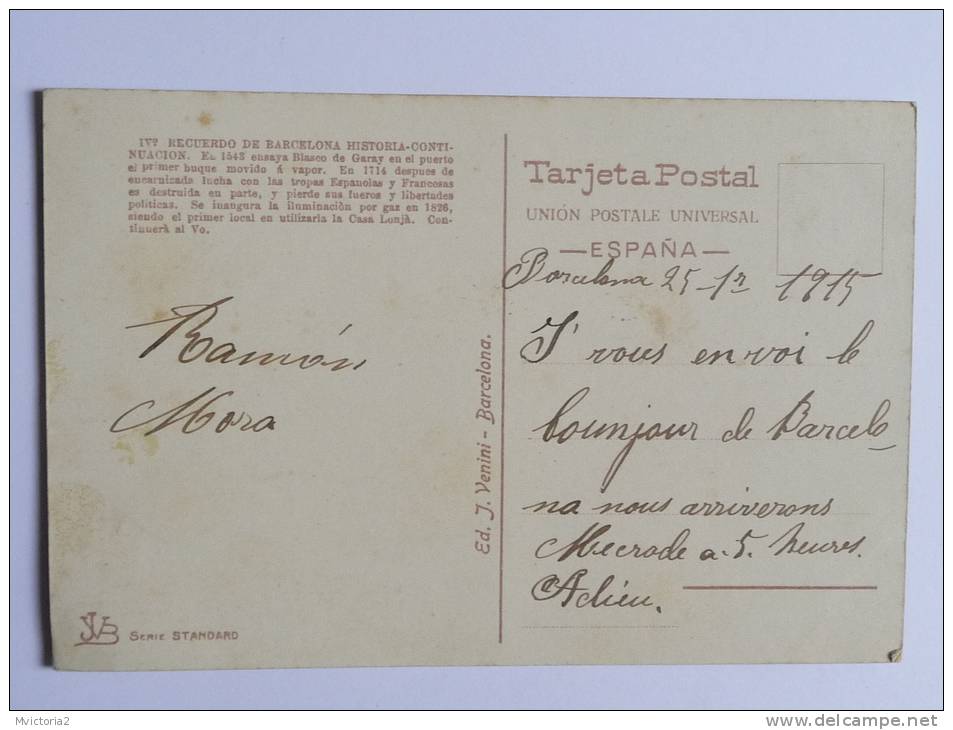 IVº RECUERDO DE BARCELONA HISTORIA-CONTI-
NUACION. En 1543 ensaya Blasco de Garay en el puerto
el primer buque movido á vapor. En 1714 despues de
encarnizada lucha con las tropas Espanolas y Francesas
es destruida en parte, y pierde sus fueros y libertades
politicas. Se inaugura la iluminaciòn por gaz en 1826,
siendo el primer local en utilizarla la Casa Lonjà. Con-
tinuerà al Vo.
Ramón
Mora
JVB SERIE STANDARD
Ed. J. Venini - Barcelona.
Tarjeta Postal
UNIÓN POSTALE UNIVERSAL
—ESPAÑA—
Barcelona 25-1r 1915
J' vous envoi le
bounjour de Barcelo
na nous arriverons
Mecrode a 5. heures.
Adieu.
Mvictoria2
www.delcampe.net